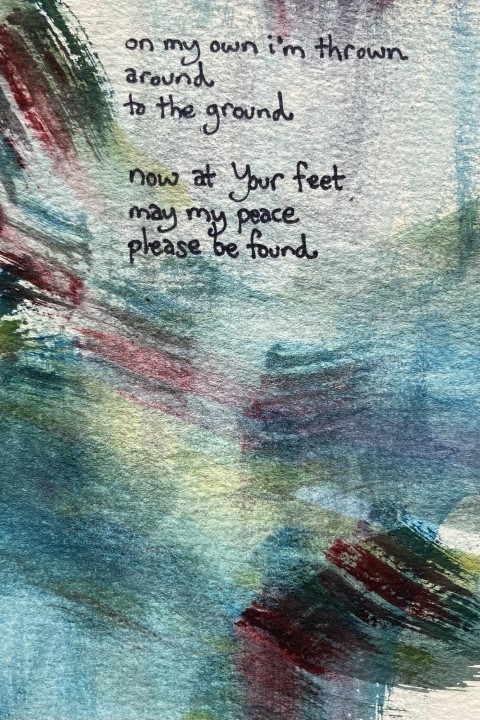 on my own i'm thrown
around
to the ground
now at Your feet
may my peace
please be found